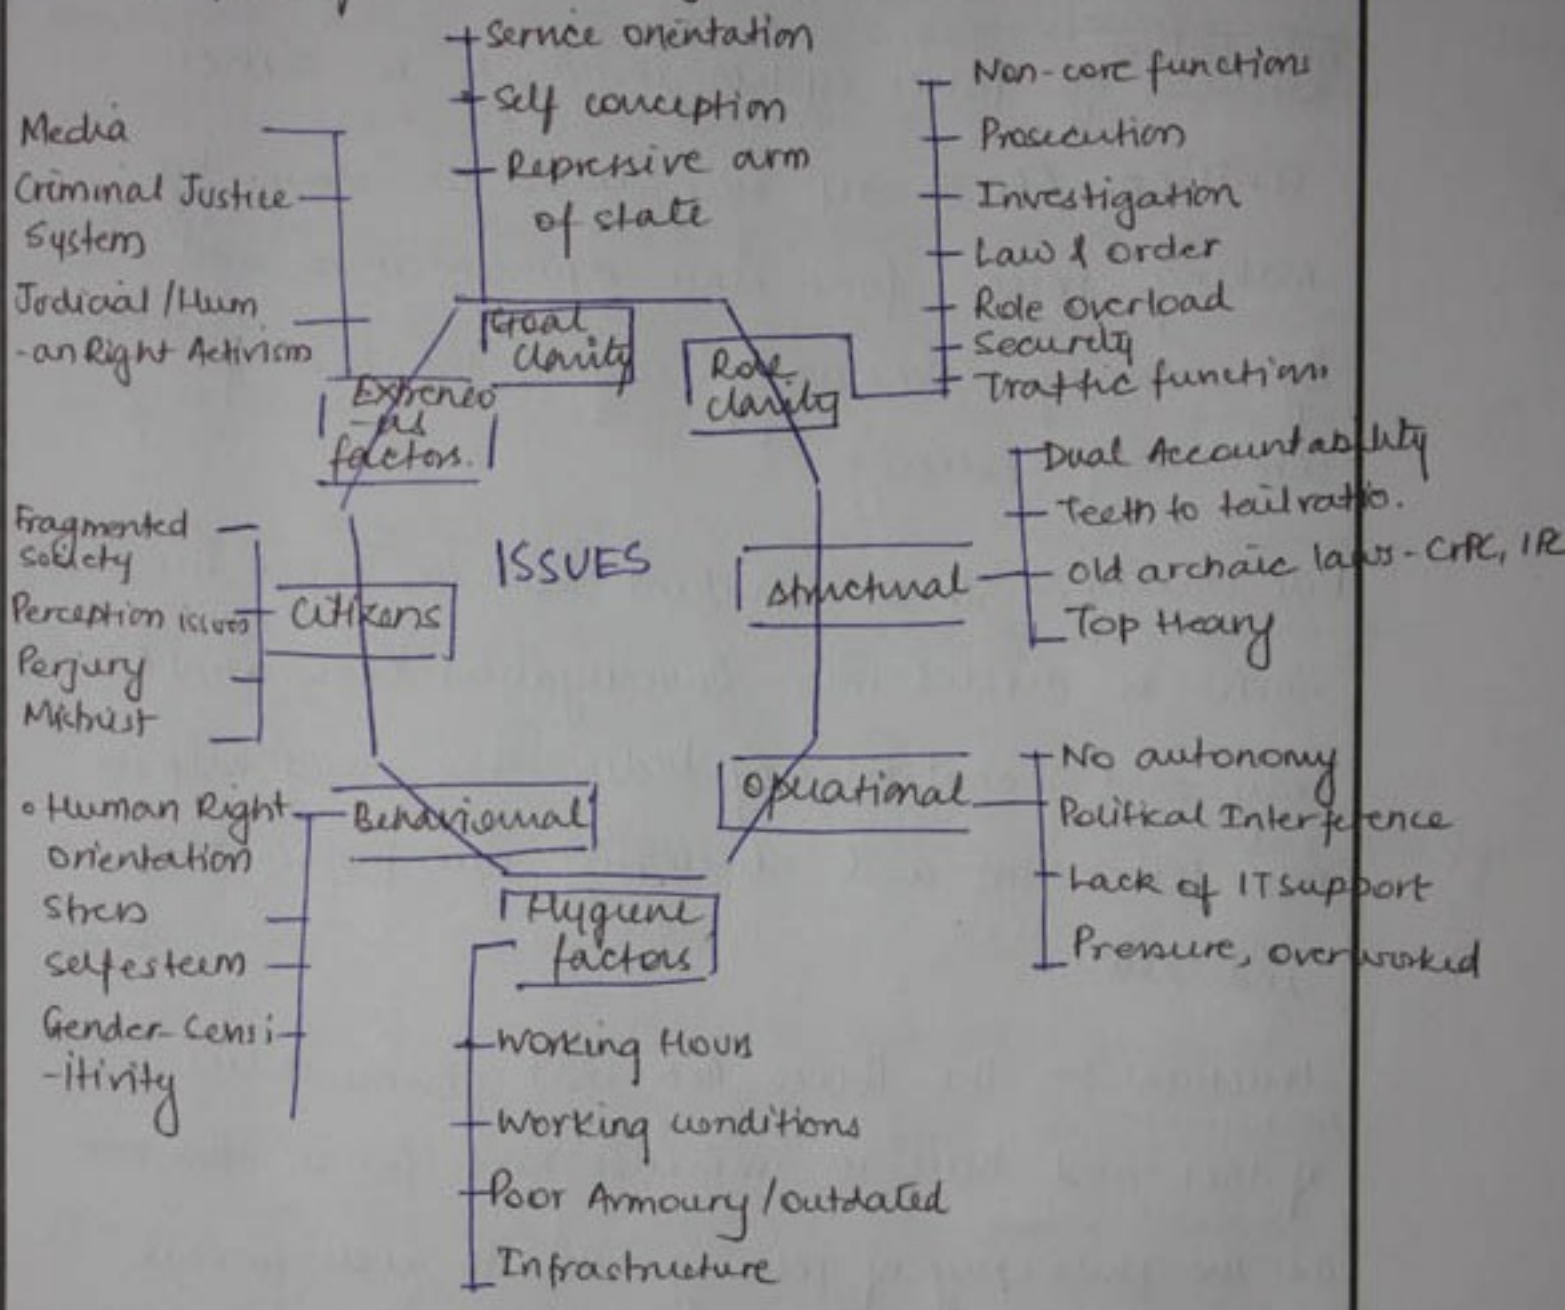 Service orientation
Self conception
Repressive arm
of state
Non-core functions
Prosecution
Investigation
Law & order
Role overload
Security
Traffic functions
Media
Criminal Justice
System
Judicial / Hum
-an Right Activism
Goal
clarity
Role
clarity
Extreneo
-us
factors.
Dual Accountability
Teeth to tail ratio.
old archaic laws - CrPC, IPC
Top Heavy
Fragmented
society
Perception issues
Perjury
Mistrust
ISSUES
Citizens
Structural
No autonomy
Political Interference
Lack of IT support
Pressure, overworked
Operational
Behaviourual
• Human Right
orientation
Stress
self esteem
Gender Censi
-itivity
Hygiene
factors
Working Hours
Working conditions
Poor Armoury / outdated
Infrastructure